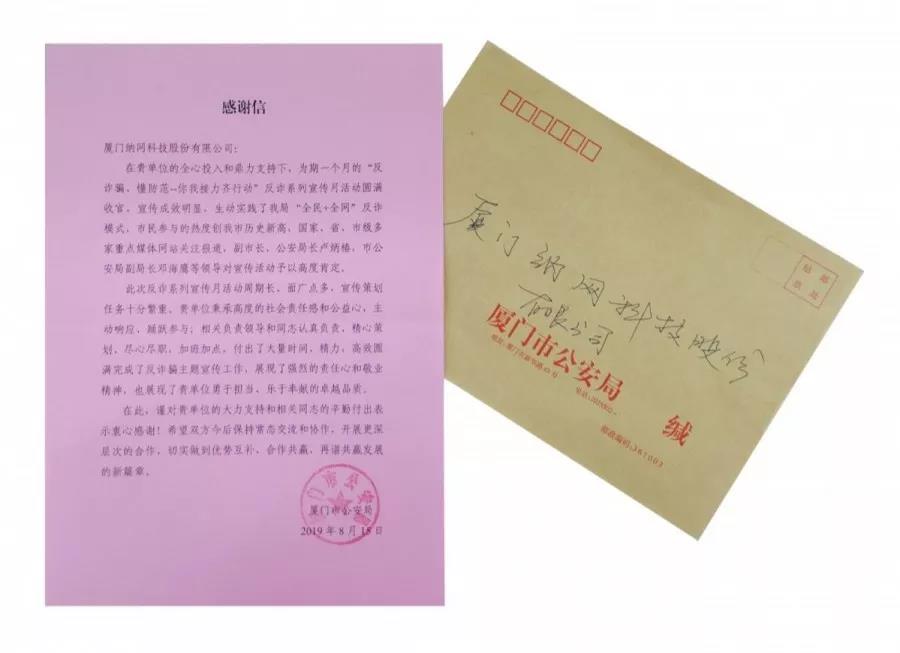 感谢信
厦门纳网科技股份有限公司:
在贵单位的全心投入和鼎力支持下，为期一个月的“反
诈骗、懂防范--你我接力齐行动”反诈系列宣传月活动圆满
收官，宣传成效明显，生动实践了我局“全民+全网”反诈
模式，市民参与的热度创我市历史新高，国家、省、市级多
家重点媒体网站关注报道，副市长、公安局长卢炳椿，市公
安局副局长邓海鹰等领导对宣传活动予以高度肯定。
此次反诈系列宣传月活动周期长、面广点多，宣传策划
任务十分繁重。贵单位秉承高度的社会责任感和公益心，主
动响应、踊跃参与；相关负责领导和同志认真负责、精心策
划、尽心尽职、加班加点，付出了大量时间、精力，高效圆
满完成了反诈骗主题宣传工作，展现了强烈的责任心和敬业
精神，也展现了贵单位勇于担当、乐于奉献的卓越品质。
在此，谨对贵单位的大力支持和相关同志的辛勤付出表
示衷心感谢！希望双方今后保持常态交流和协作，开展更深
层次的合作，切实做到优势互补、合作共赢，再谱共赢发展
的新篇章。
厦门市公安局
2019年8月15日
厦门纳网科技股份
有限公司
厦门市公安局 缄
地址:厦门市新华路45号
邮政编码:361003
贴邮
票处